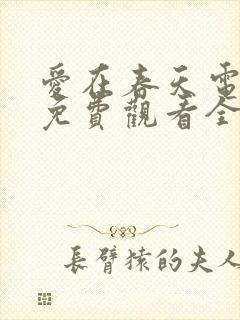 愛在春天電
免費觀看全
長臂猿的夫人